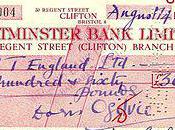 50 REGENT STREET
CLIFTON
BRISTOL 8
004
August 14
TMINSTER BANK LIMI
EGENT STREET (CLIFTON) BRANCH
T England Ltd
hundred and sixty
Pounds
Doris